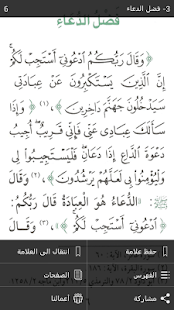 6
3- فضل الدعاء
فَضْلُ الدُّعَاءِ
﴿وَقَالَ رَبُّكُمُ ادْعُونِي أَسْتَجِبْ لَكُمْ
إِنَّ الَّذِينَ يَسْتَكْبِرُونَ عَنْ عِبَادَتِي
سَيَدْخُلُونَ جَهَنَّمَ دَاخِرِينَ﴾(١) ﴿وَإِذَا
سَأَلَكَ عِبَادِي عَنِّي فَإِنِّي قَرِيبٌ أُجِيبُ
دَعْوَةَ الدَّاعِ إِذَا دَعَانِ فَلْيَسْتَجِيبُوا لِي
وَلْيُؤْمِنُوا بِي لَعَلَّهُمْ يَرْشُدُونَ﴾(٢) وَقَالَ
: «الدُّعَاءُ هُوَ الْعِبَادَةُ قَالَ رَبُّكُمْ:
﴿ادْعُونِي أَسْتَجِبْ لَكُمْ﴾»(٣)، وَقَالَ
حفظ علامة
انتقال الى العلامة
الفهرس
الصفحات
مشاركة
أعمالنا